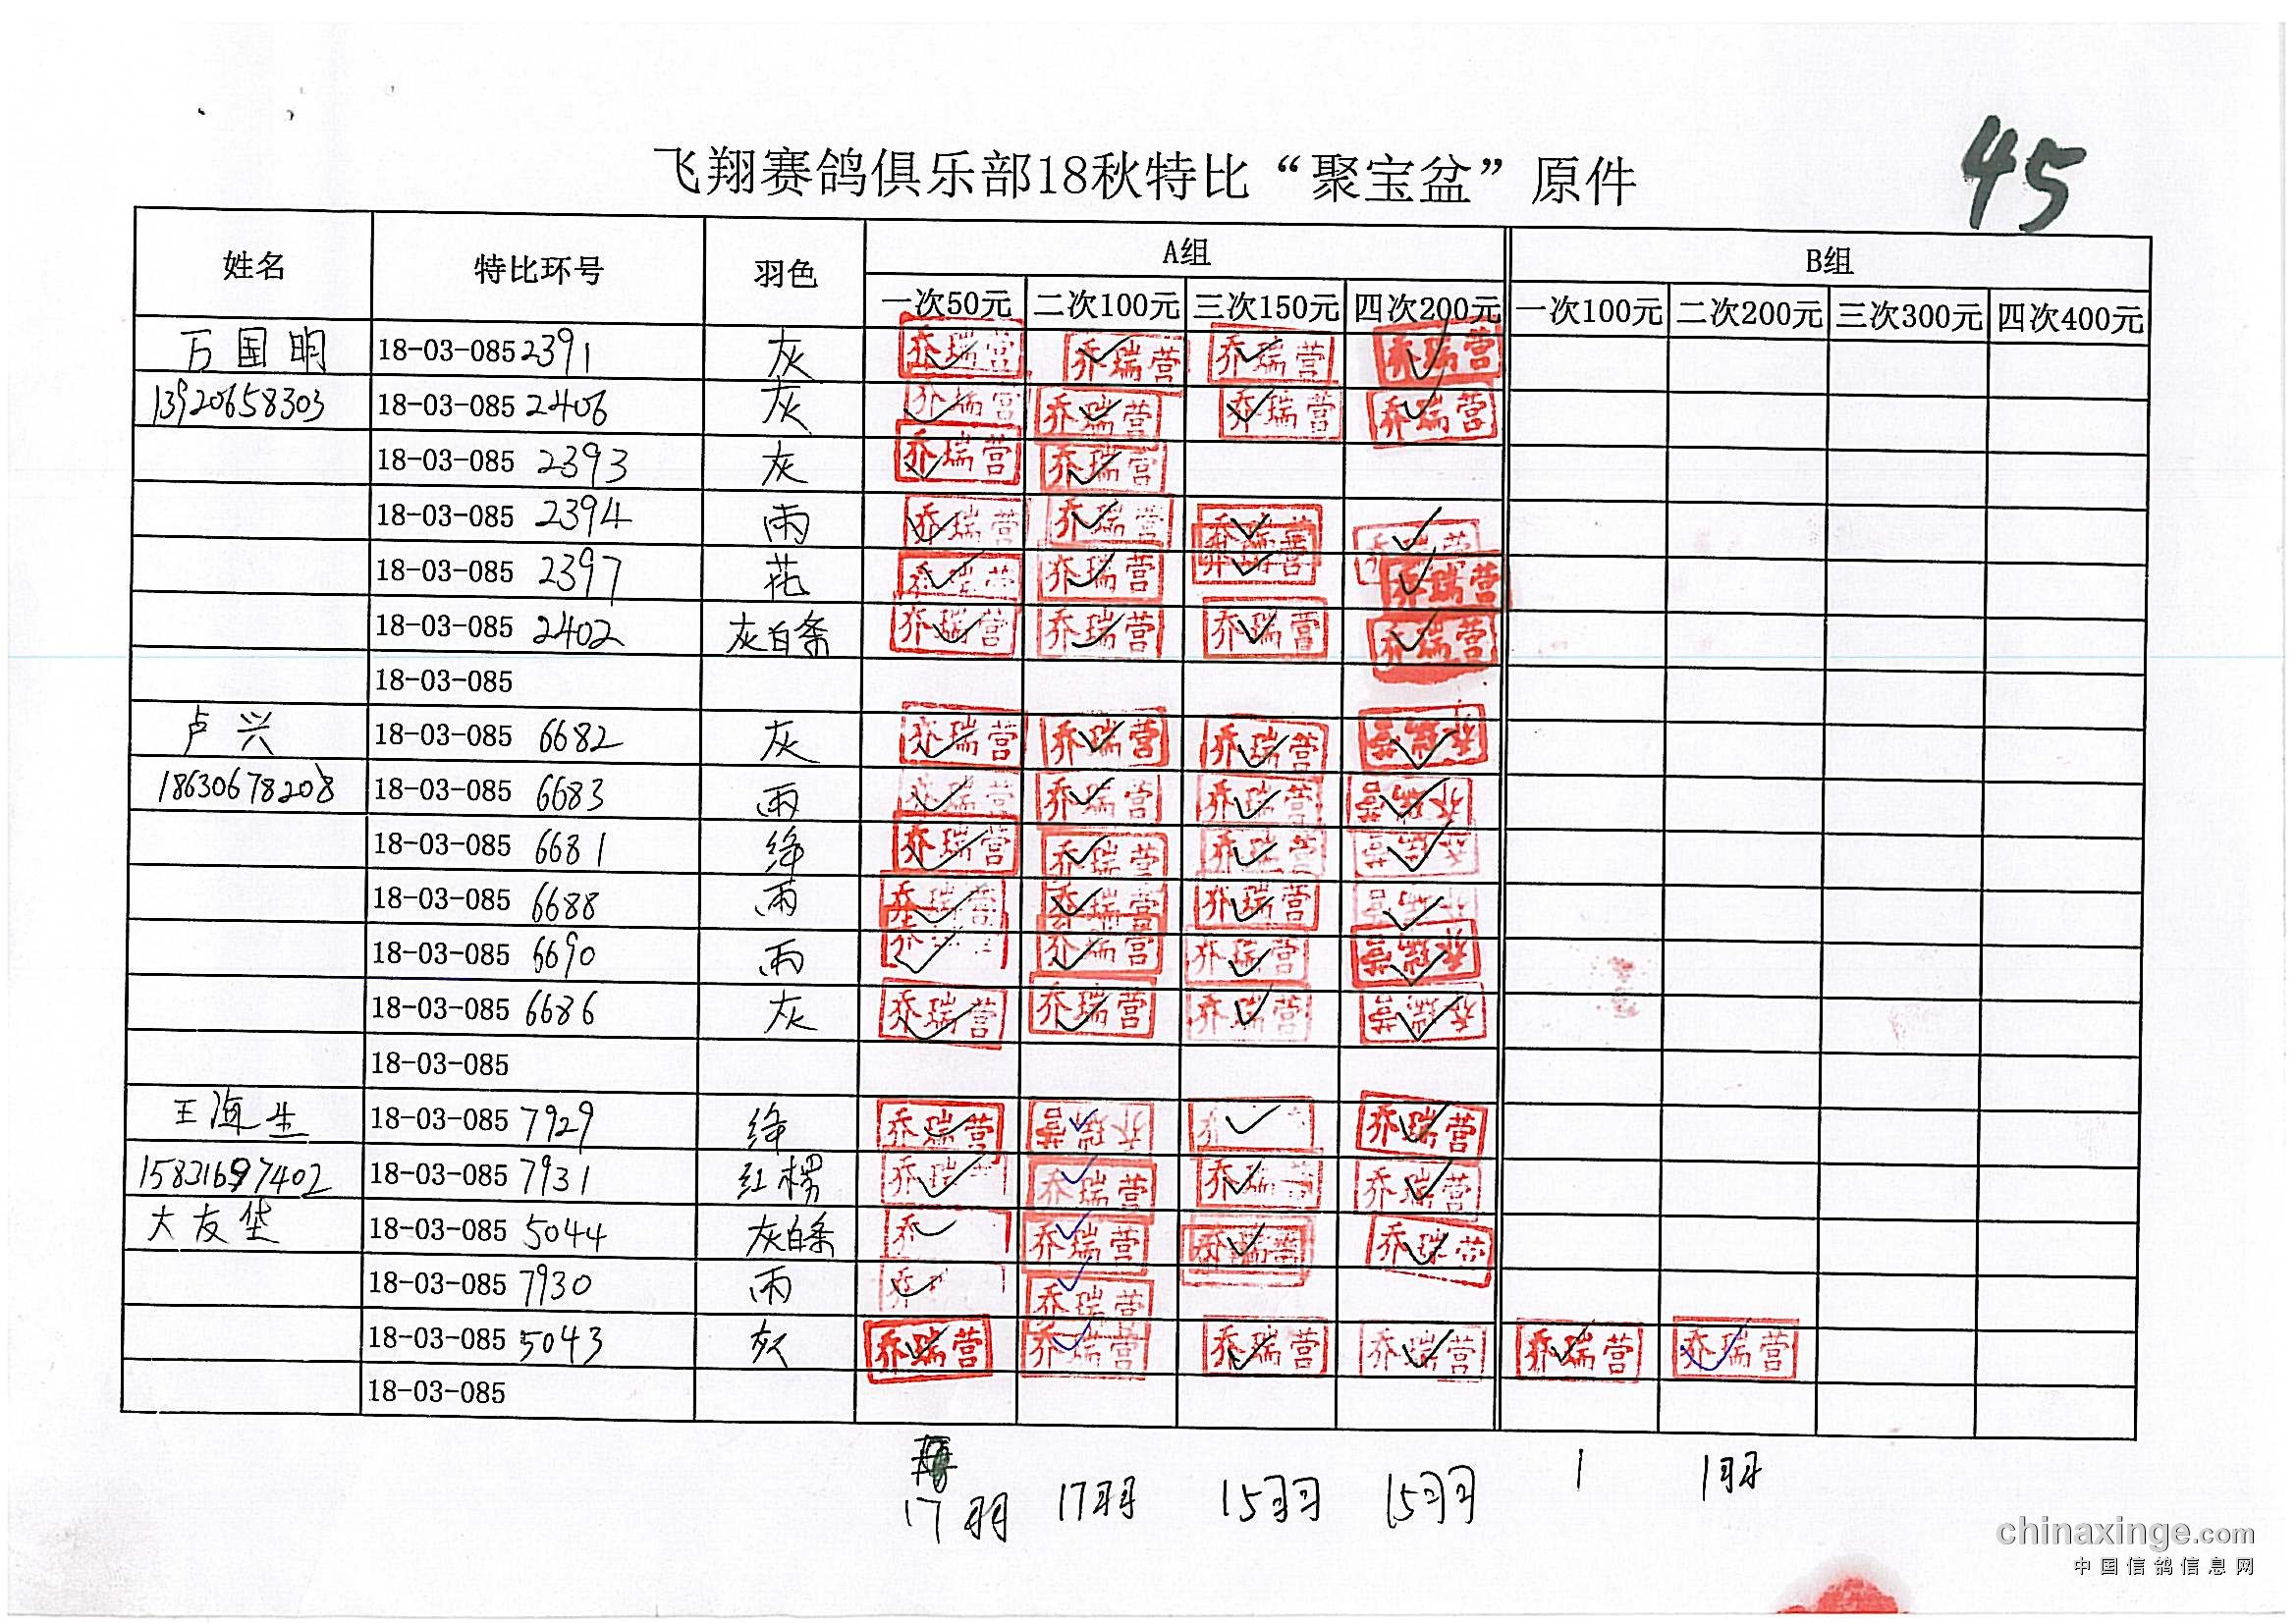 45
飞翔赛鸽俱乐部18秋特比“聚宝盆”原件
姓名 特比环号 羽色 A组 B组
一次50元 二次100元 三次150元 四次200元 一次100元 二次200元 三次300元 四次400元
万国明 18-03-085 2391 灰 乔瑞营 乔瑞营 乔瑞营 乔瑞营
13920658303 18-03-085 2406 灰 乔瑞营 乔瑞营 乔瑞营 乔瑞营
18-03-085 2393 灰 乔瑞营 乔瑞营
18-03-085 2394 雨 乔瑞营 乔瑞营 乔瑞营 乔瑞营
18-03-085 2397 花 乔瑞营 乔瑞营 乔瑞营 乔瑞营
18-03-085 2402 灰白条 乔瑞营 乔瑞营 乔瑞营 乔瑞营
18-03-085
卢兴 18-03-085 6682 灰 乔瑞营 乔瑞营 乔瑞营 乔瑞营
18630678208 18-03-085 6683 雨 乔瑞营 乔瑞营 乔瑞营 乔瑞营
18-03-085 6681 绛 乔瑞营 乔瑞营 乔瑞营 乔瑞营
18-03-085 6688 雨 乔瑞营 乔瑞营 乔瑞营 乔瑞营
18-03-085 6690 雨 乔 乔瑞营 乔瑞营 乔瑞营
18-03-085 6686 灰 乔瑞营 乔瑞营 乔瑞营 乔瑞营
18-03-085
王海生 18-03-085 7929 绛 乔瑞营 乔瑞营 乔 乔瑞营
15831697402 18-03-085 7931 红楞 乔瑞营 乔瑞营 乔瑞营 乔瑞营
大友垡 18-03-085 5044 灰白条 乔 乔瑞营 乔瑞营 乔瑞营
18-03-085 7930 雨 乔 乔瑞营
18-03-085 5043 灰 乔瑞营 乔瑞营 乔瑞营 乔瑞营 乔瑞营 乔瑞营
18-03-085
17羽 17羽 15羽 15羽 1 1羽
chinaxinge.com
中国信鸽信息网